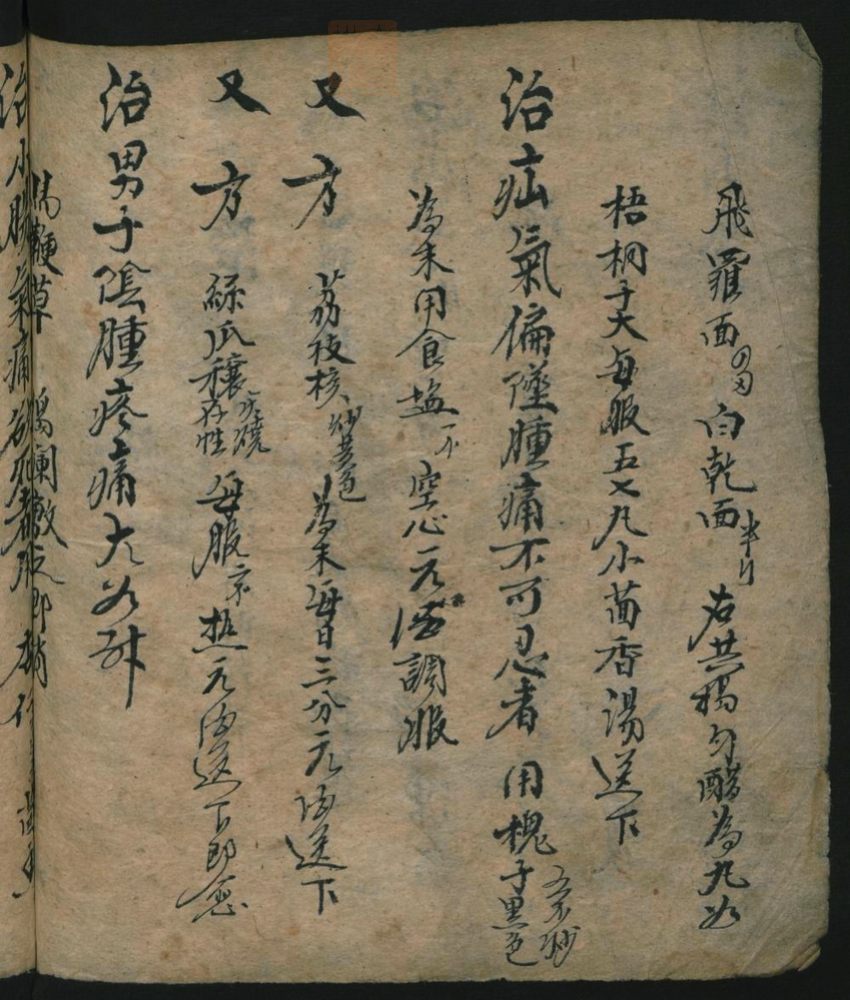 飛羅面 四兩 白乾面 半斤 右共搗勻醋為丸如
梧桐子大每服五七丸小茴香湯送下
治疝氣偏墜腫痛不可忍者 用槐子 五錢炒黑色
為末用食塩 空心元酒調服
又方 荔枝核 炒黃色 為末每日三分元酒送下
又方 絲瓜穰 火燒存性 每服 熱元酒送下即愈
治男子陰腫疼痛大如升
馬鞭草 搗爛敷之即消
治小腸氣痛欲死者